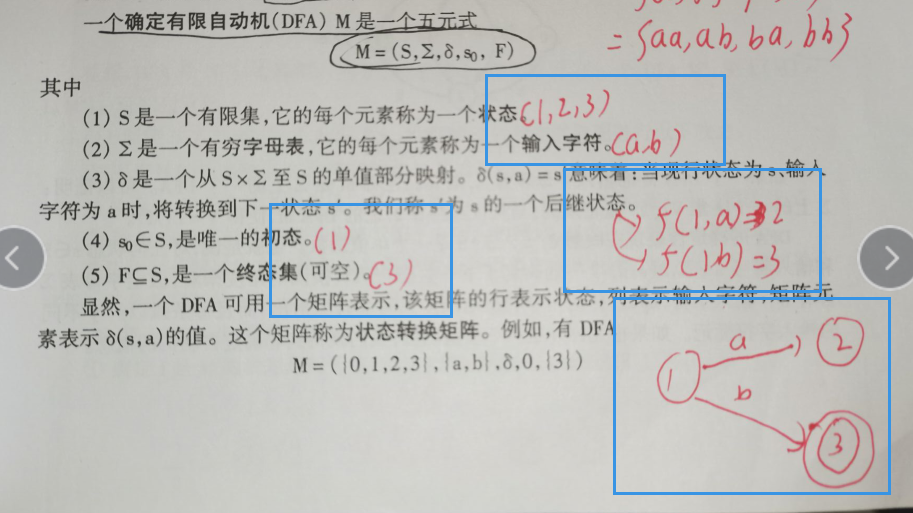 一个确定有限自动机(DFA) M 是一个五元式
M=(S,Σ,δ,s₀, F)
={aa,ab,ba,bb}
其中
(1) S 是一个有限集,它的每个元素称为一个状态。(1,2,3)
(2) Σ 是一个有穷字母表,它的每个元素称为一个输入字符。(a,b)
(3) δ 是一个从 S×Σ 至 S 的单值部分映射。δ(s,a)=s 意味着:当现行状态为 s、输入
字符为 a 时,将转换到下一状态 s′。我们称 s′为 s 的一个后继状态。
f(1,a)=2
(4) s₀∈S,是唯一的初态。(1)
f(1,b)=3
(5) F⊆S,是一个终态集(可空)。(3)
显然,一个 DFA 可用一个矩阵表示,该矩阵的行表示状态,列表示输入字符,矩阵元
素表示 δ(s,a)的值。这个矩阵称为状态转换矩阵。例如,有 DFA
M=({0,1,2,3},{a,b},δ,0,{3})
a
2
1
b
3